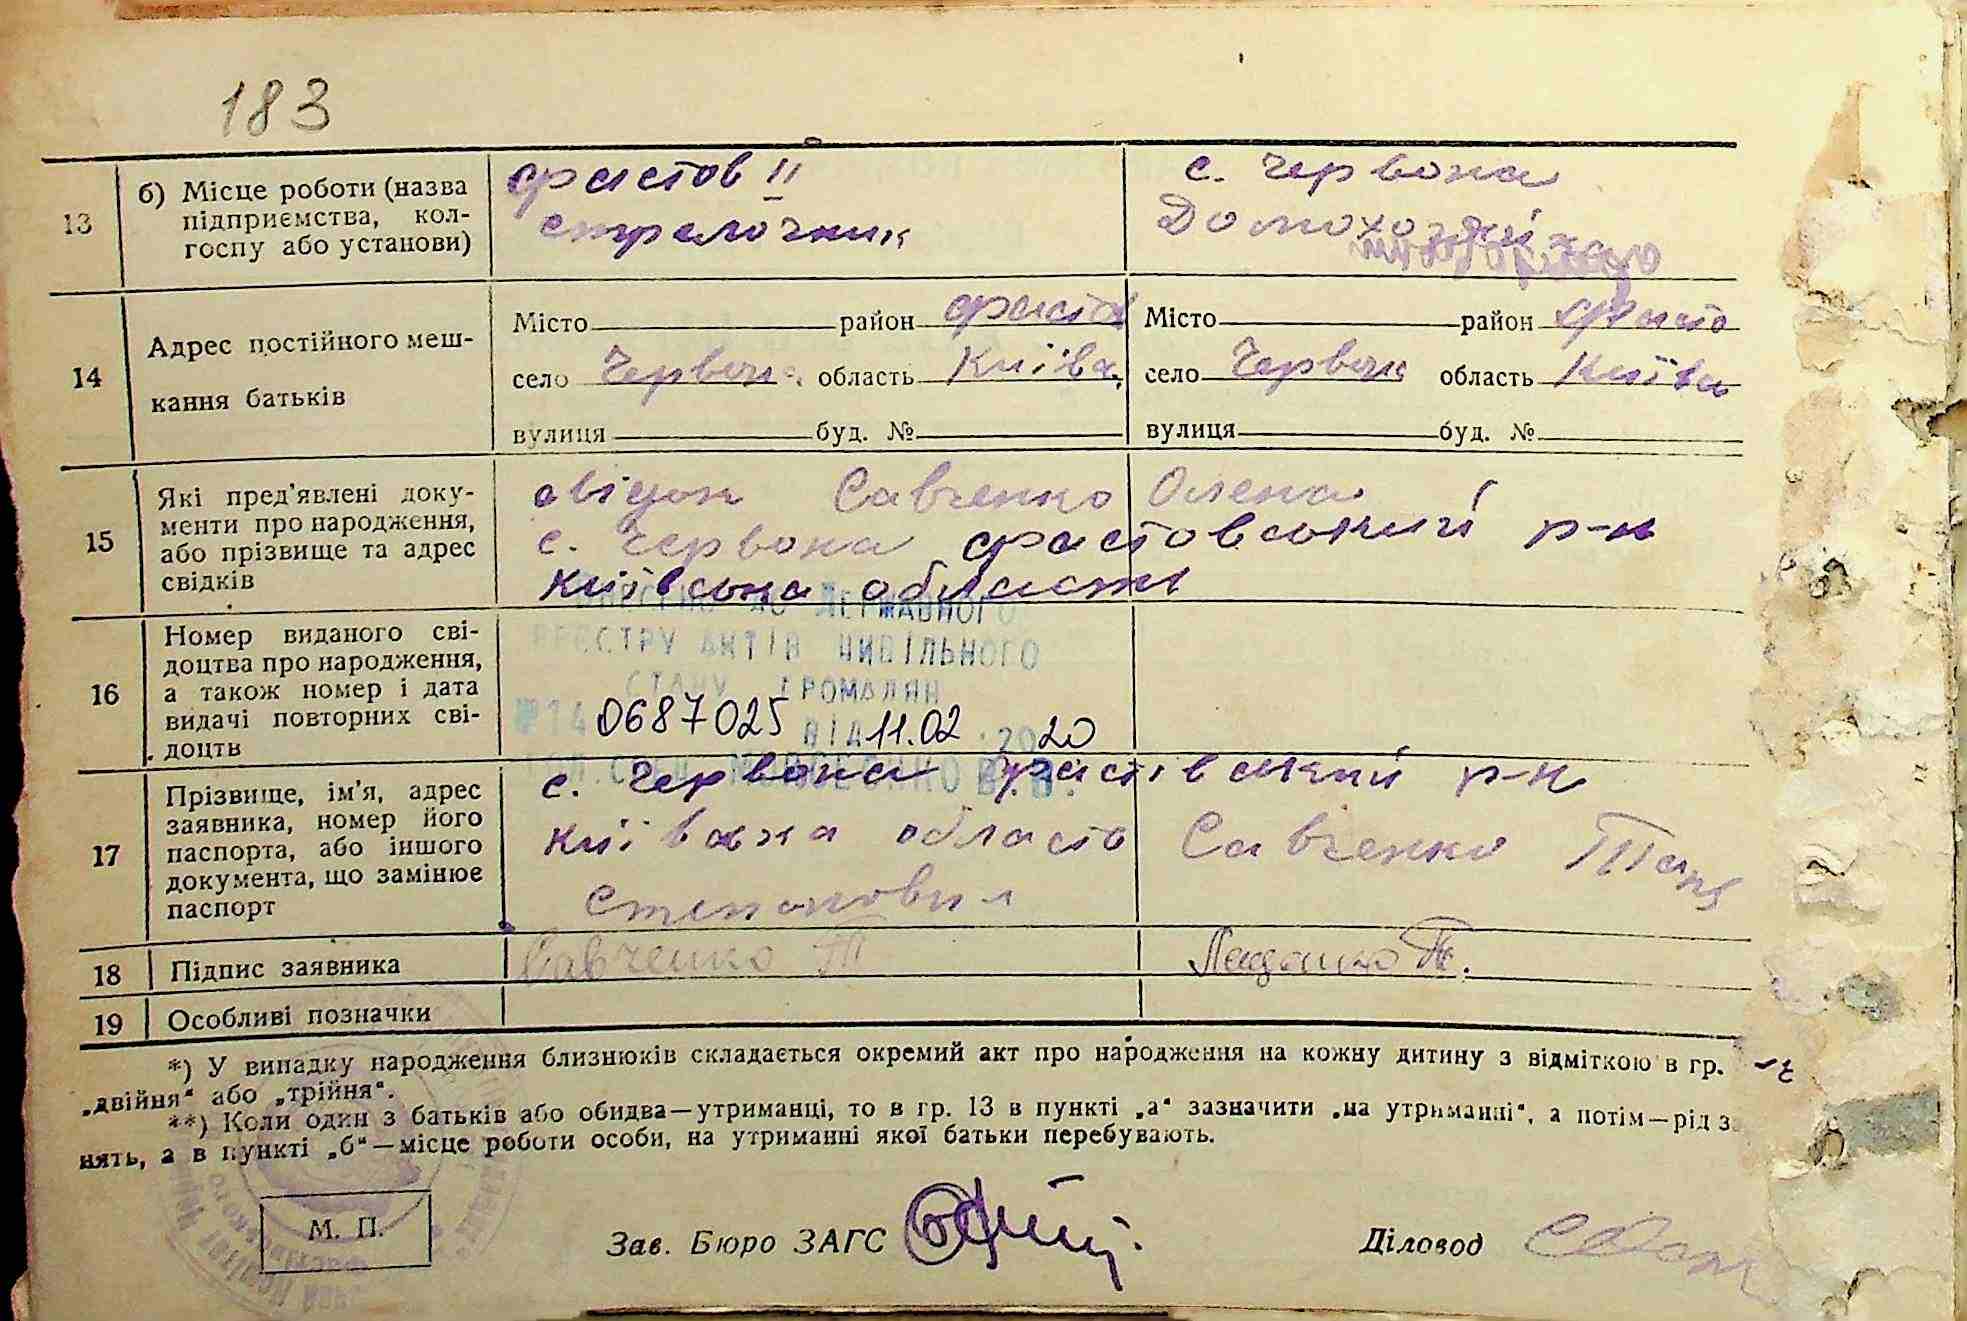 183
13
б) Місце роботи (назва
підприємства, кол-
госпу або установи)
Фастов II
стрелочник
с. Червона
Домохозяйка
14
Адрес постійного меш-
кання батьків
Місто район Фастов
село Червона область Київа.
вулиця буд. №
Місто район Фасто
село Червона область Київа
вулиця буд. №
15
Які пред'явлені доку-
менти про народження,
або прізвище та адрес
свідків
свідок Савченко Олена
с. Червона Фастовський р-н
Київська область
16
Номер виданого сві-
доцтва про народження,
а також номер і дата
видачі повторних сві-
доцтв
ВНЕСЕНО ДО ДЕРЖАВНОГО
РЕЄСТРУ АКТІВ ЦИВІЛЬНОГО
СТАНУ ГРОМАДЯН
№14 0687025 ВІД 11.02.2020
17
Прізвище, ім'я, адрес
заявника, номер його
паспорта, або іншого
документа, що замінює
паспорт
с. Червона Фастівський р-н
Київська область Савченко
Степанович
18
Підпис заявника
Савченко Т
19
Особливі позначки
*) У випадку народження близнюків складається окремий акт про народження на кожну дитину з відміткою в гр.
„двійня“ або „трійня“.
**) Коли один з батьків або обидва—утриманці, то в гр. 13 в пункті „а“ зазначити „на утриманні“, а потім—рід з
нять, а в пункті „б“—місце роботи особи, на утриманні якої батьки перебувають.
М. П.
Зав. Бюро ЗАГС
Діловод